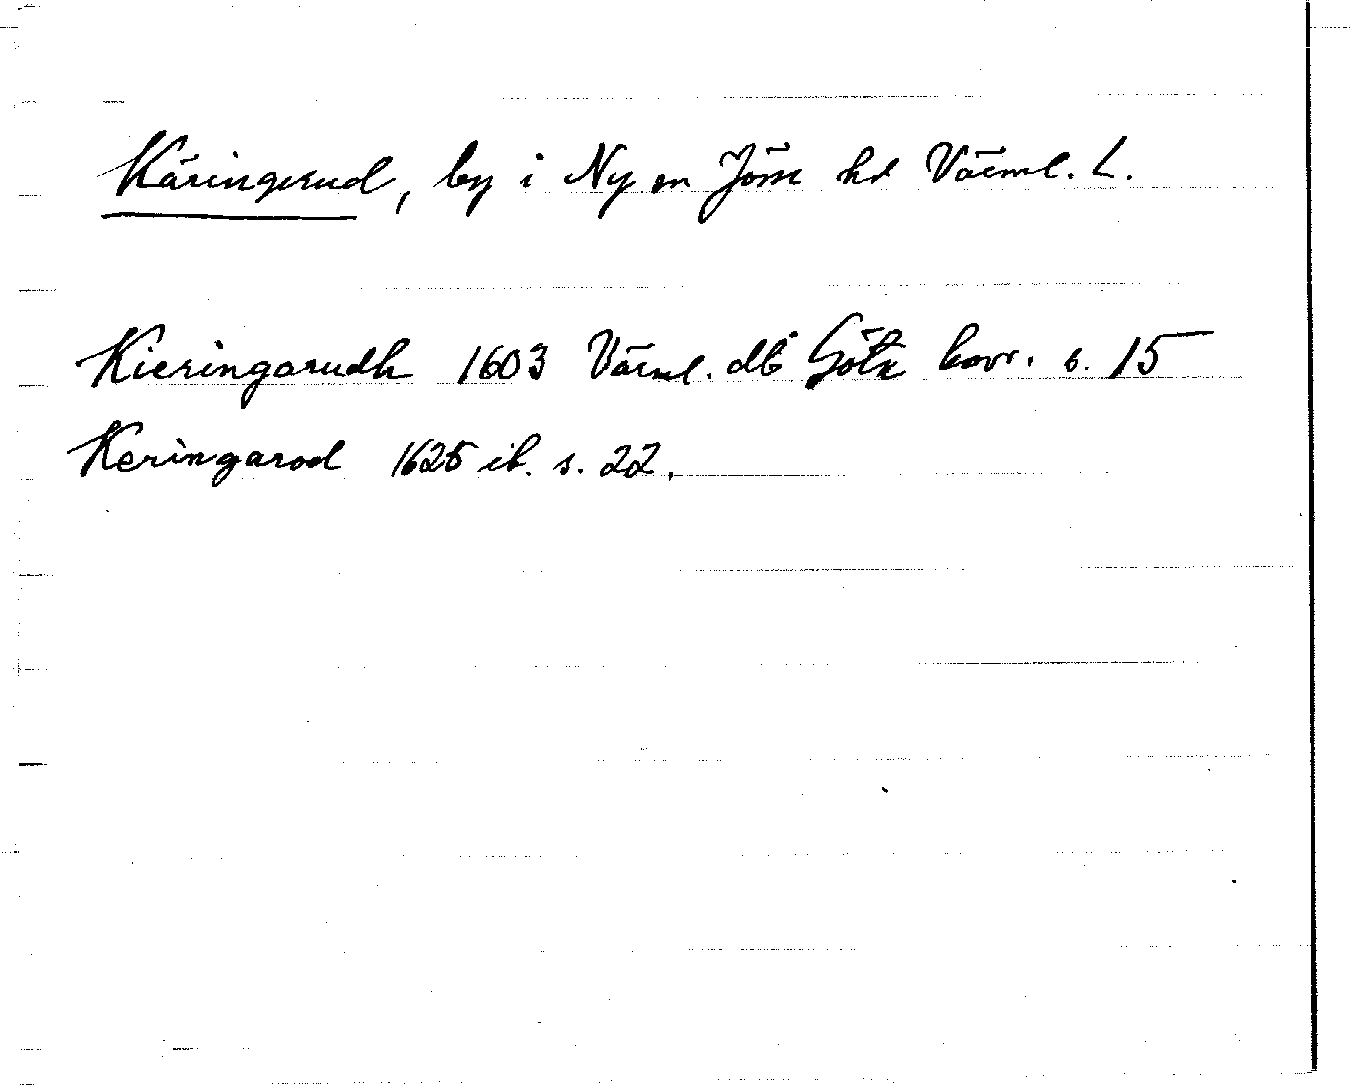 Käringerud, by i Ny sn Jösse hd Värml. L.
Kieringarudh 1603 Värml. db Götz kavr. s. 15
Keringarod 1625 ib. s. 22.